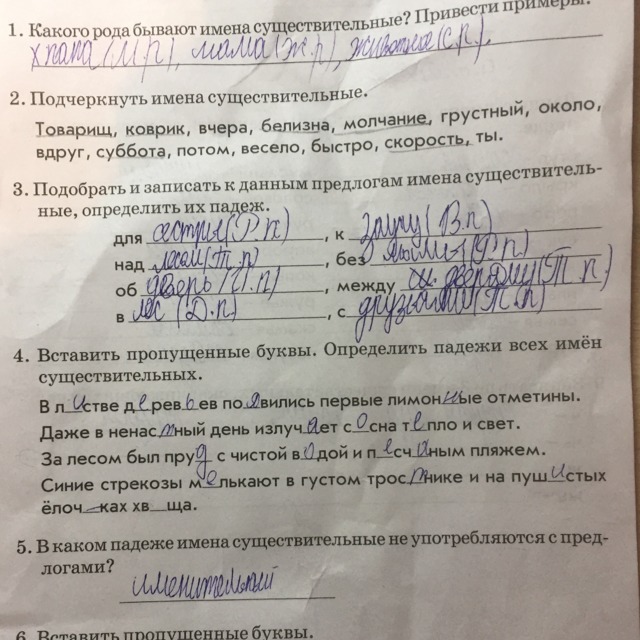 1. Какого рода бывают имена существительные? Привести примеры.
папа (М.р), мама (Ж.р), животное (С.р),
2. Подчеркнуть имена существительные.
Товарищ, коврик, вчера, белизна, молчание, грустный, около,
вдруг, суббота, потом, весело, быстро, скорость, ты.
3. Подобрать и записать к данным предлогам имена существитель-
ные, определить их падеж.
для сестры (Р.п), к (В.п)
над лесом (Т.п), без (Р.п)
об дверь (П.п), между (Т.п)
в лес (Д.п), с друзьями (Т.п)
4. Вставить пропущенные буквы. Определить падежи всех имён
существительных.
В листве деревьев появились первые лимонные отметины.
Даже в ненастный день излучает сосна тепло и свет.
За лесом был пруд с чистой водой и песчаным пляжем.
Синие стрекозы мелькают в густом тростнике и на пушистых
ёлоч–ках хв_ща.
5. В каком падеже имена существительные не употребляются с пред-
логами? именительный
6. Вставить пропущенные буквы.